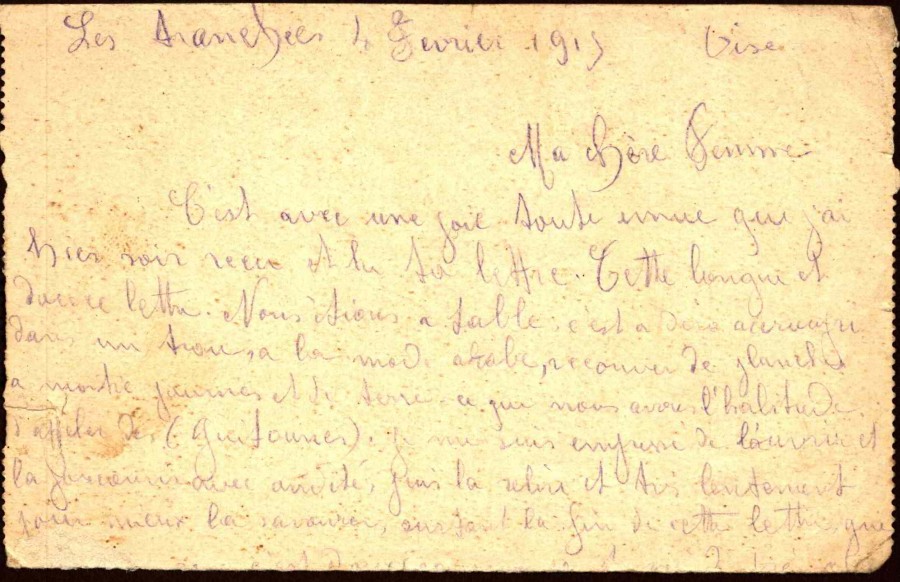 Les tranchées 4 Fevrier 1915 Vise
Ma chère Femme
C'est avec une joie toute emue que j'ai
hier soir recu et lu ta lettre. Cette longue et
douce lettre. Nous étions a table, c'est a dire accroupi
dans un trou, a la mode arabe, recouver de planches
a moitié et de terre ce que nous avons l'habitude
d'appeler des (Guitounes). Je me suis empressé de l'ouvrir et
la parcourir avec avidité, puis la relire et très lentement
pour mieux la savourer, surtout la fin de cette lettre que